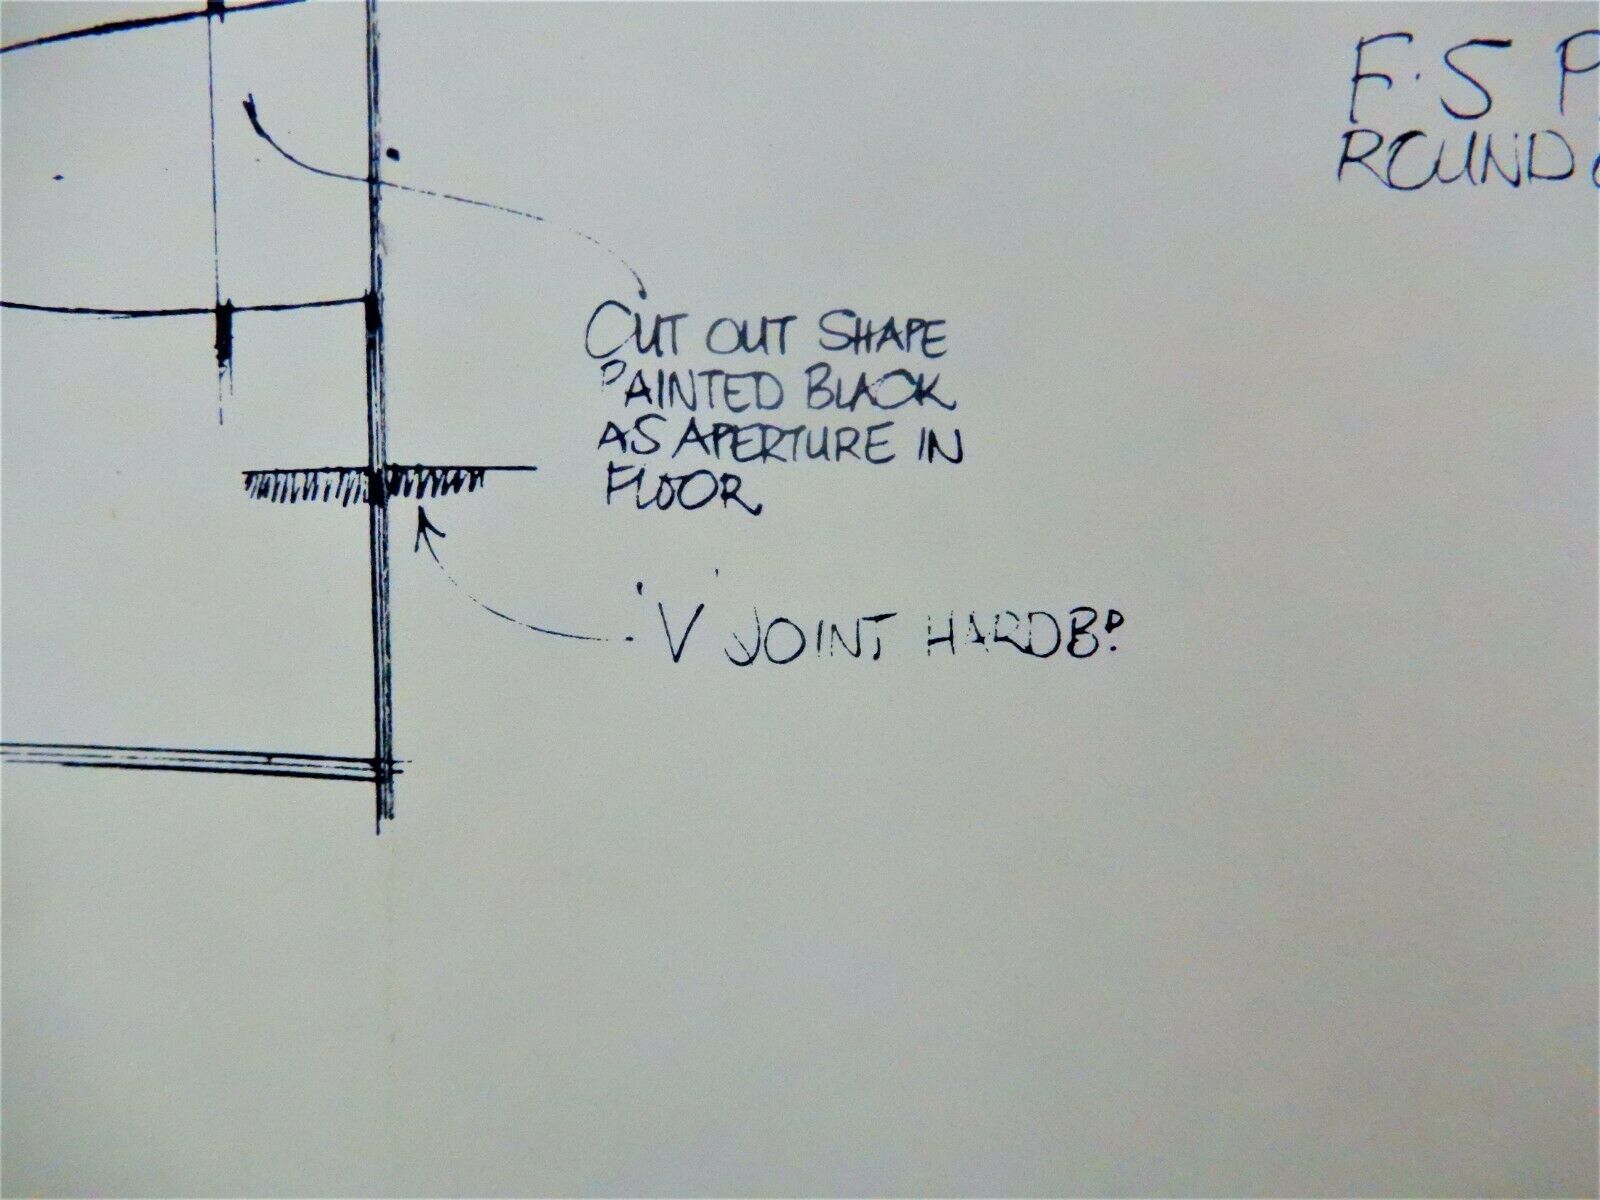 CUT OUT SHAPE
PAINTED BLACK
AS APERTURE IN
FLOOR
'V' JOINT HARDBD.
F.S P
ROUND